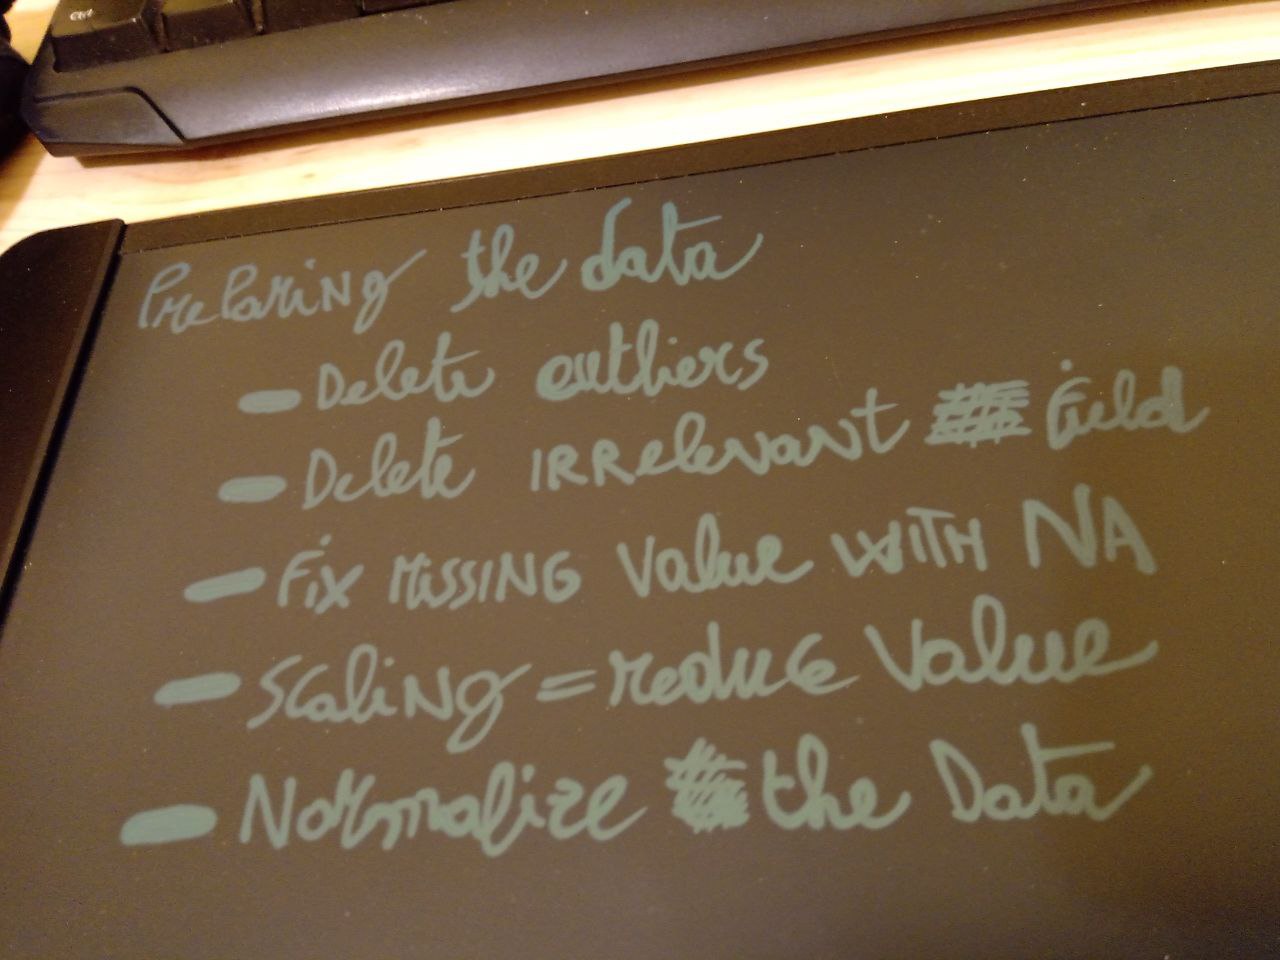 Ctrl
Preparing the data
- Delete outliers
- Delete irrelevant field
- Fix missing value with NA
- Scaling = reduce value
- Normalize the Data